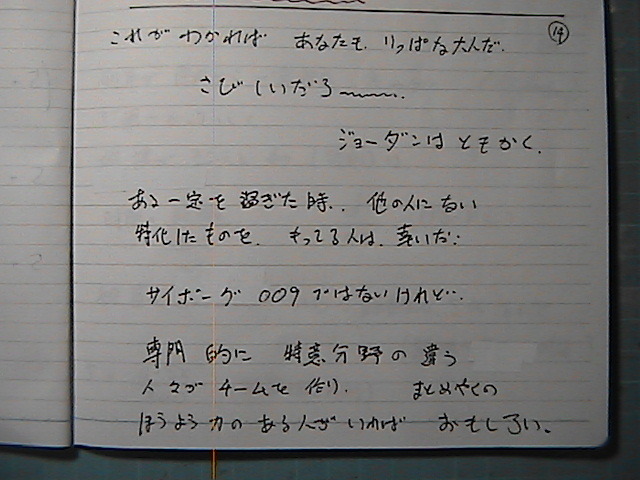 ⑭
これが わかれば あなたも、りっぱな大人だ.
さびしいだろ〜〜.
ジョーダンは ともかく.
ある一定を 過ぎた時.. 他の人に ない
特化したものを、 もってる人は、 強いだ..
サイボーグ 009 ではないけれど..
専門 的に 特意分野の 違う
人々が チームを 作り. まとめやくの
ほうよう力の ある人が いれば おもしろい、